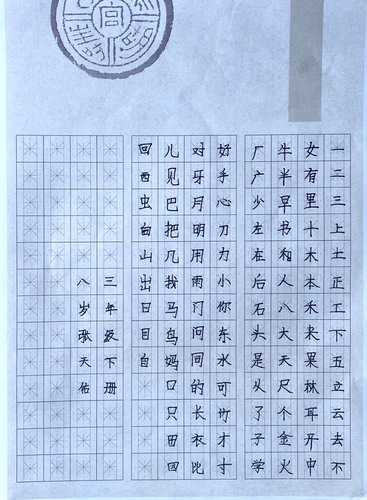 一二三上土正工下五立云去不
女有里十木本禾来果林耳开中
牛半早书和人八大天尺个金火
厂广少左在后石头是从了子学
好手心刀力小你东水可竹才寸
对牙月明用雨门问同的长衣比
儿见巴把几我马鸟妈口只田四
回西虫白山出日目自
三年级下册
八岁天佑